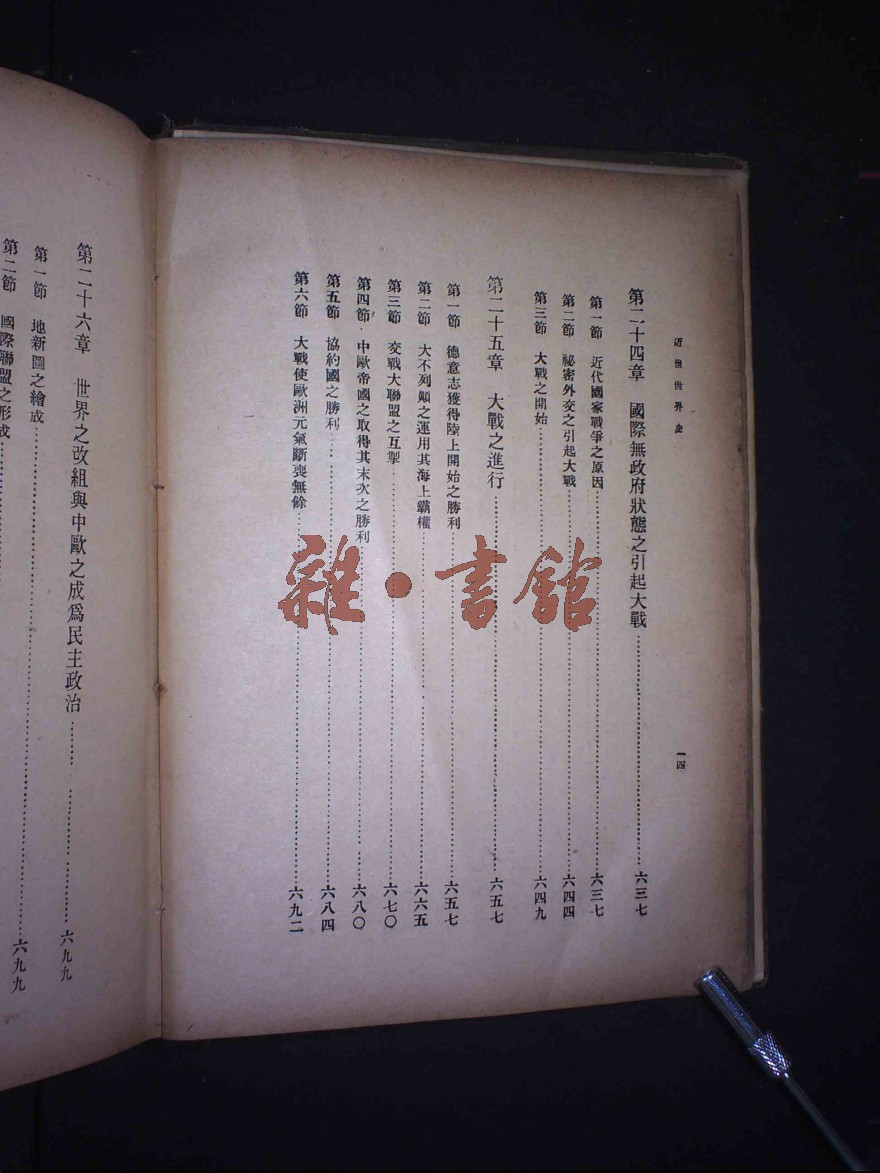 近世世界史
一四
第二十四章　國際無政府狀態之引起大戰……六三七
第一節　近代國家戰爭之原因……六三七
第二節　秘密外交之引起大戰……六四四
第三節　大戰之開始……六四九
第二十五章　大戰之進行……六五七
第一節　德意志獲得陸上開始之勝利……六五七
第二節　大不列顛之運用其海上霸權……六六五
第三節　交戰大聯盟之互掣……六七〇
第四節　中歐帝國之取得其末次之勝利……六八〇
第五節　協約國之勝利……六八四
第六節　大戰使歐洲元氣斲喪無餘……六九二
第二十六章　世界之改組與中歐之成爲民主政治……六九九
第一節　地新圖之繪成
第二節　國際聯盟之形成……六九九
雜·書館